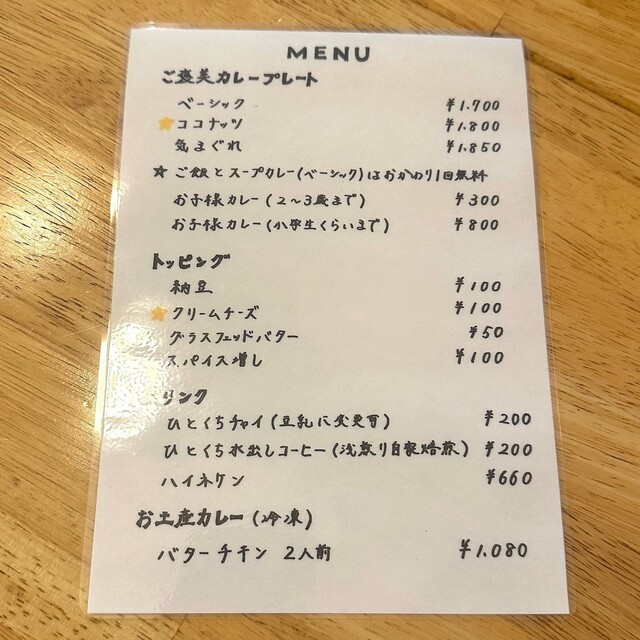 MENU
ご褒美カレープレート
ベーシック ¥1.700
ココナッツ ¥1.800
気まぐれ ¥1.850
★ ご飯とスープカレー(ベーシック)はおかわり1回無料
お子様カレー(2〜3歳まで) ¥300
お子様カレー(小学生くらいまで) ¥800
トッピング
納豆 ¥100
クリームチーズ ¥100
グラスフェッドバター ¥50
スパイス増し ¥100
リンク
ひとくちチャイ(豆乳に変更可) ¥200
ひとくち水出しコーヒー(浅煎り自家焙煎) ¥200
ハイネケン ¥660
お土産カレー(冷凍)
バターチキン 2人前 ¥1.080